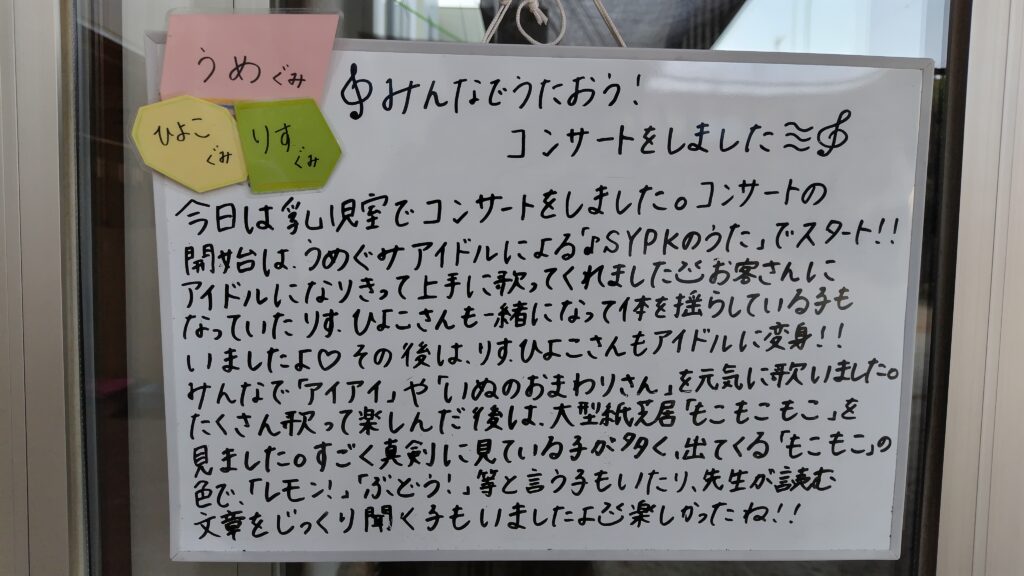 うめぐみ
ひよこぐみ
りすぐみ
みんなでうたおう!
コンサートをしました
今日は乳児室でコンサートをしました。コンサートの
開始は、うめぐみアイドルによる「♪SYPKのうた」でスタート!!
アイドルになりきって上手に歌ってくれました お客さんに
なっていたりす、ひよこさんも一緒になって体を揺らしている子も
いましたよ♡ その後は、りす、ひよこさんもアイドルに変身!!
みんなで「アイアイ」や「いぬのおまわりさん」を元気に歌いました。
たくさん歌って楽しんだ後は、大型紙芝居「もこもこもこ」を
見ました。すごく真剣に見ている子が多く、出てくる「もこもこ」の
色で、「レモン!」「ぶどう!」等と言う子もいたり、先生が読む
文章をじっくり聞く子もいましたよ 楽しかったね!!